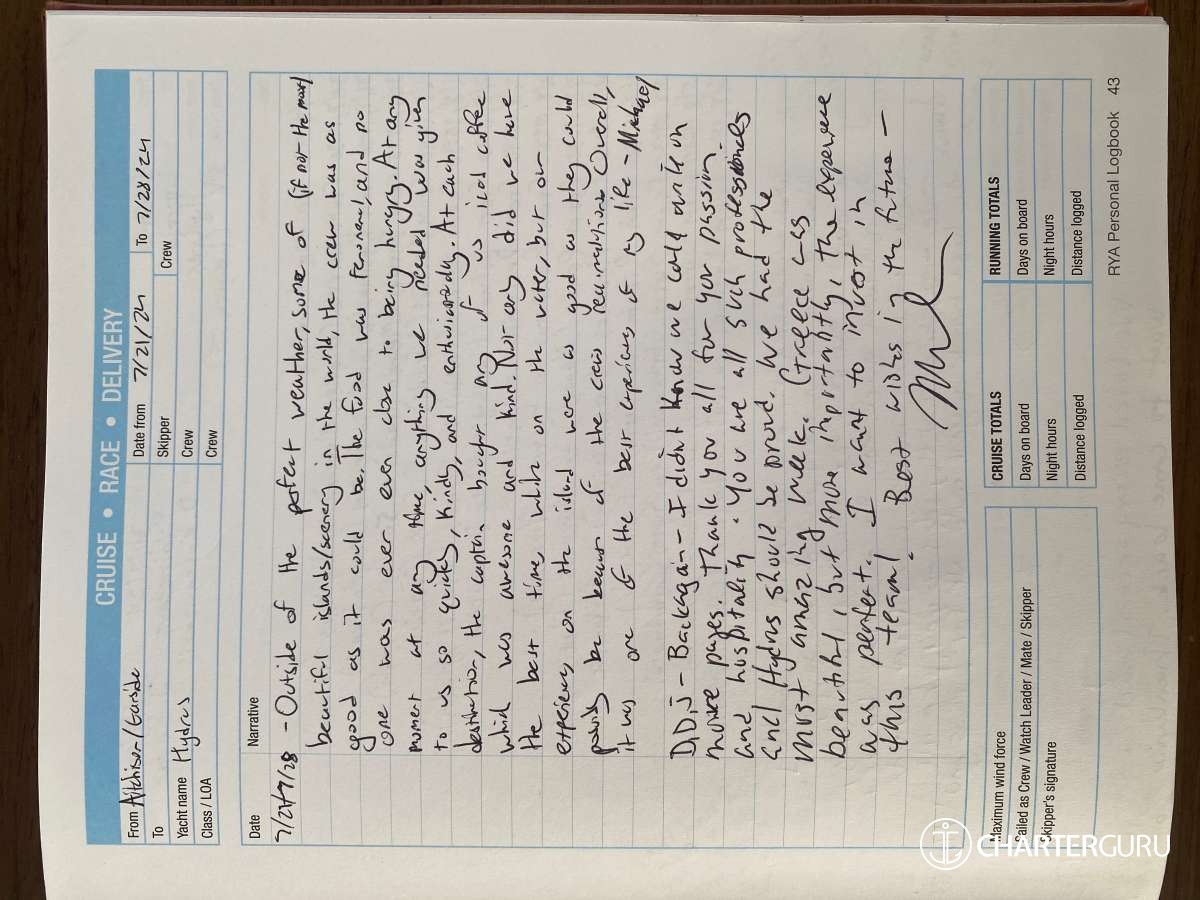 CRUISE • RACE • DELIVERY
From Aitchison/Garside
Date from 7/21/24
To 7/28/24
To
Skipper
Crew
Yacht name Hydrus
Crew
Class / LOA
Crew
Date
Narrative
7/28 - Outside of the perfect weather, some of (if not the most)
beautiful islands/scenery in the world, the crew was as
good as it could be. The food was and no
one was ever even close to being hungry. At any
moment at any time, anything we needed was given
to us so quickly, kindly, and enthusiastically. At each
destination, the captain bought any of us iced coffee
which was awesome and kind. Not only did we have
the best time while on the water, but our
experiences on the island were as good as they could
be because of the crews Overall,
it was one of the best experiences of my life - Michael
D, D, J - Back again - I didn't know we could write on
more pages. Thank you all for your passion
and hospitality. You are all such professionals
and Hydrus should be proud. We had the
most amazing week. Greece was
beautiful, but more importantly, the experience
was perfect. I want to invest in
this team! Best wishes in the future -
Maximum wind force
Sailed as Crew / Watch Leader / Mate / Skipper
Skipper's signature
CRUISE TOTALS
Days on board
Night hours
Distance logged
RUNNING TOTALS
Days on board
Night hours
Distance logged
RYA Personal Logbook 43
CHARTERGURU